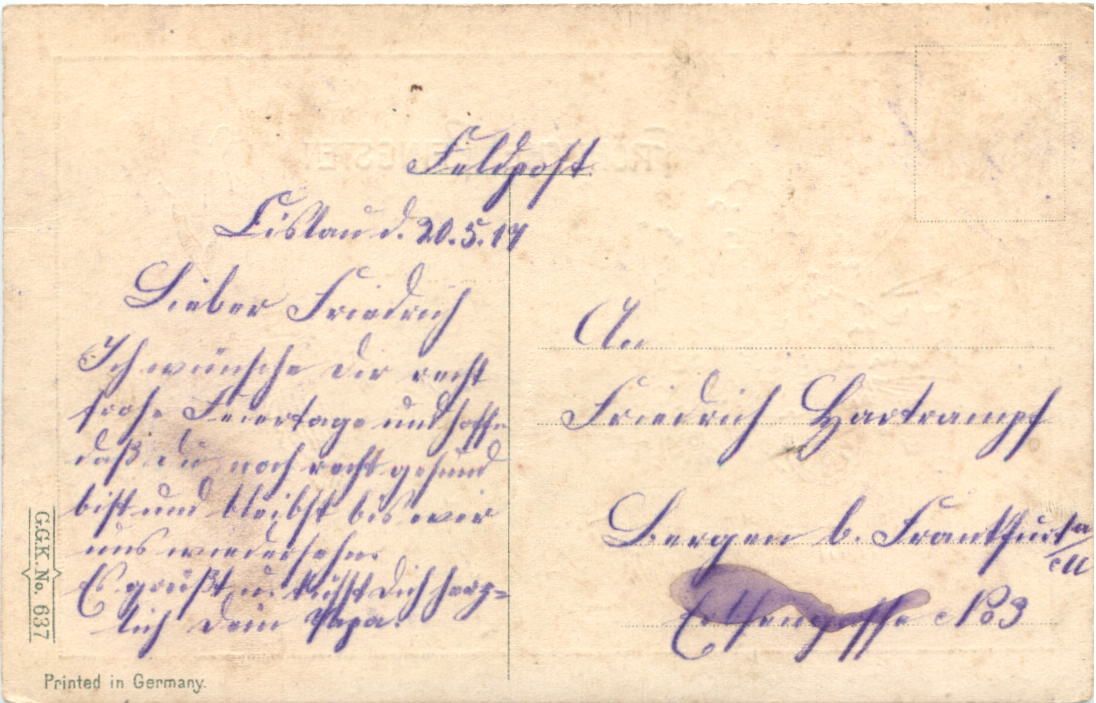 Feldpost
d. 20.5.17
Lieber Friedrich
Ich wünsche Dir recht
frohe Feiertage und hoffe
daß du noch recht gesund
bist und bleibst bis wir
uns wiedersehen.
Es grüßt u. küsst Dich herz-
lich Dein Papa.
An
Friedrich Hartrampf
Bergen b. Frankfurt a/M
No 3
G.G.K. No. 637
Printed in Germany.